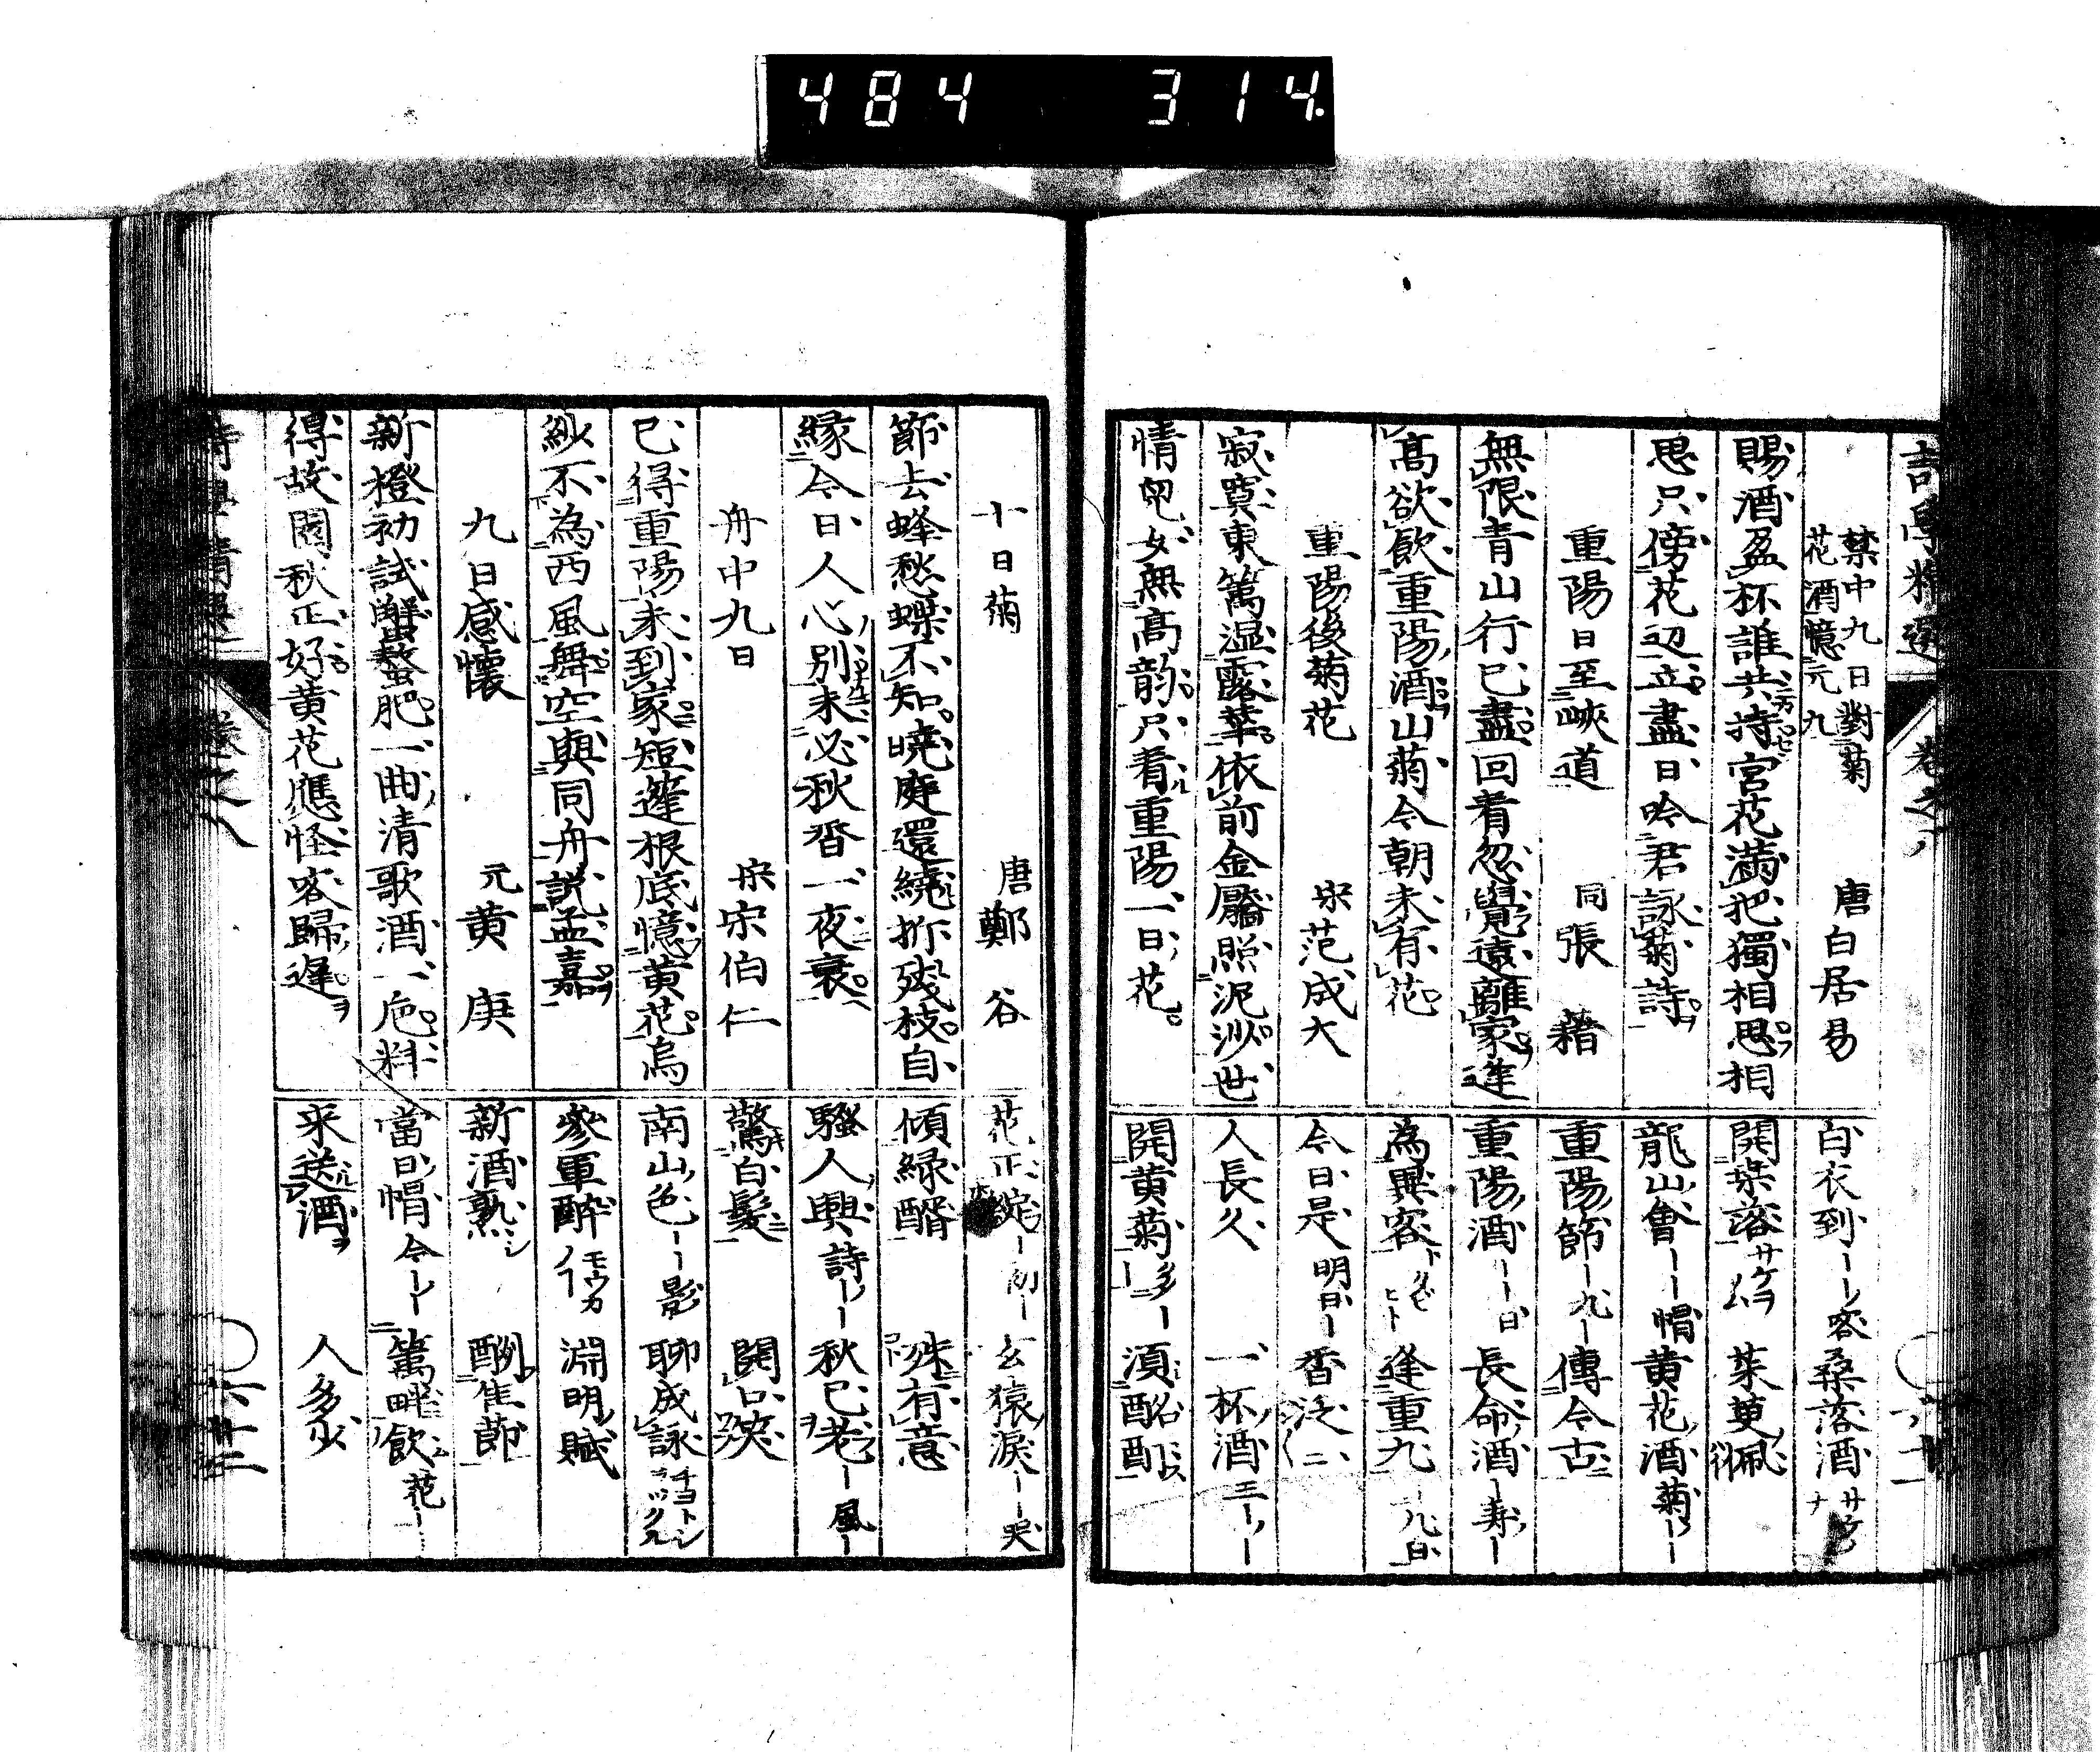 484 314
禁中九日對菊
花酒憶元九
唐白居易
賜酒盈杯誰共持宮花滿把獨相思相
思只傍花辺立盡日吟君詠菊詩
重陽日至峽道
同張籍
無限青山行已盡回看忽覺遠離家逢
髙欲飲重陽酒山菊今朝未有花
重陽後菊花
宋范成大
寂寞東籬湿露華依前金靨照泥沙世
情児女無髙韵只看重陽一日花
白衣到 客 桑落酒
開桒落 茱萸佩
龍山會 帽 黄花酒 菊
重陽節 九 傳今古
重陽酒 日 長命酒 寿
為異客 逢重九 九日
今日是 明日 香泛
人長久 一杯酒 三
開黄菊 多 須酩酊
十日菊
唐鄭谷
節去蜂愁蝶不知曉庭還繞折残枝自
縁今日人心別未必秋香一夜衰
舟中九日
宋宋伯仁
已得重陽未到家短篷根底憶黄花烏
紗不為西風舞空與同舟説孟嘉
九日感懷
元黄庚
新橙初試蟹螯肥一曲清歌酒一卮料
得故園秋正好黄花應怪客歸遅
花正綻 玄猿淚 哭
傾緑醑 殊有意
騒人興 詩 秋已老 風
驚白髪 開口笑
南山色 影 聊成詠
參軍酔 モウカ 淵明賦
新酒熟 酬佳節
當日帽 今 籬畔飲 花
来送酒 人多少
卷之八